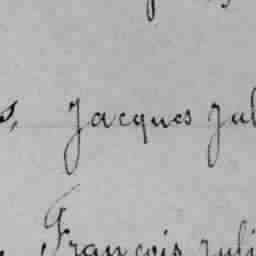 Jacques Jul
François Juli